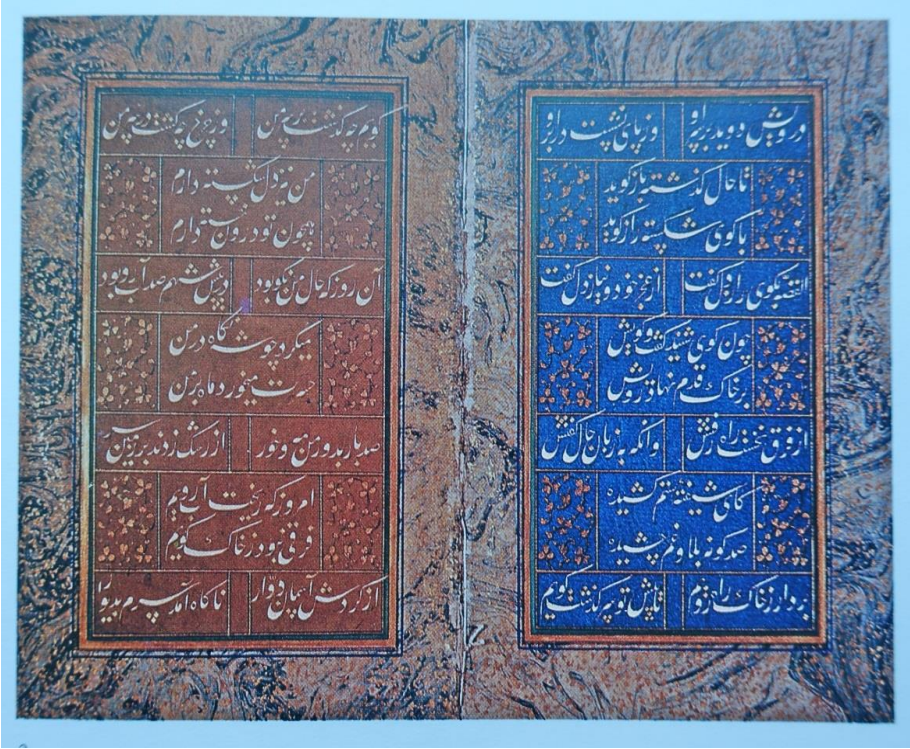 درویش دوید بر پی او وز پای نشست در بر او
تا حال گذشته باز گوید
با گوی شکسته راز گوید
القصه بگوی راز دل گفت از عجز خود و نیاز دل گفت
چون گوی شنید گفت و گویش
بر خاک قدم نهاد رویش
از فرق نخست راه رفتش وانگه به زبان حال گفتش
کای شیفته ستم کشیده
صد گونه بلا و غم چشیده
بردار ز خاک راه رویم تا پیش تو سرگذشت گویم
گویم چه گذشت بر سر من وز چرخ چه گشت من
من نیز دل شکسته دارم
همچون تو درون خسته دارم
آن روز که حال من نکو بود در پیش شهم صد آب رو بود
میکرد چو شه نگاه در من
حسرت میخورد ماه بر من
صد بار بدور من مه و خور از رشک زدند بر زمین سر
امروز که ریخت آب رویم
فرقی نبود ز خاک کویم
از گردش آسمان دوار ناگاه آمد سرم بدیوار